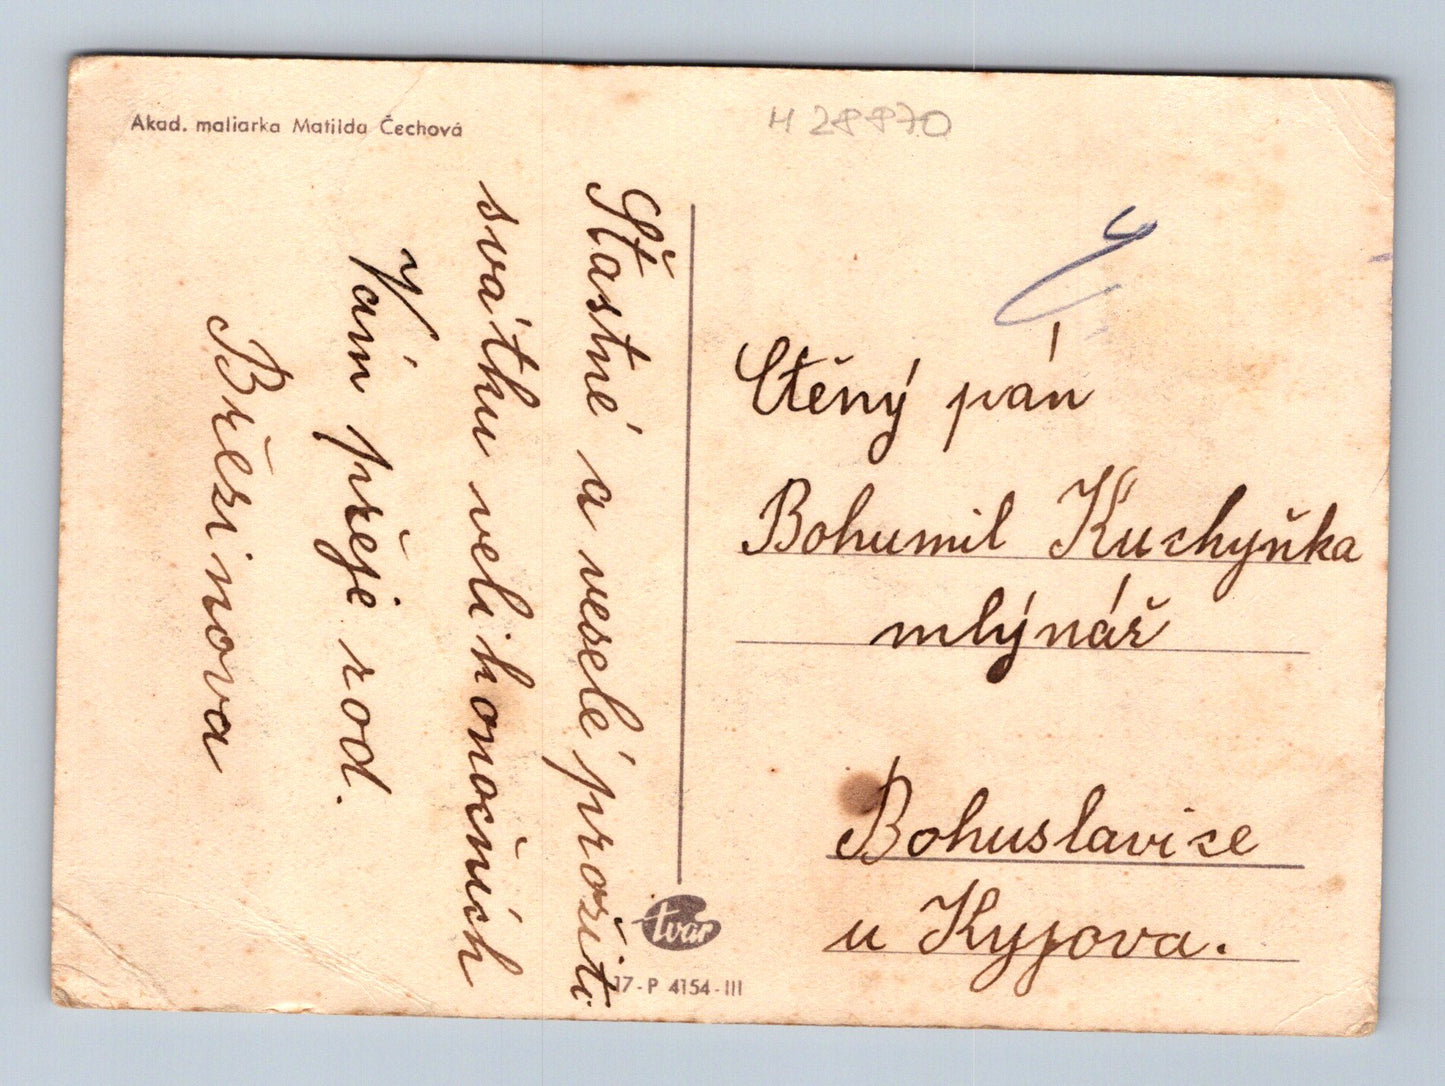 Akad. maliarka Matilda Čechová
H 28870
Šťastné a veselé prožití
svátku velikonočních
Vám přeje rod.
Březinova
Ctěný pán
Bohumil Kuchyňka
mlýnář
Bohuslavice
u Kyjova.
tvar
17-P 4154-III